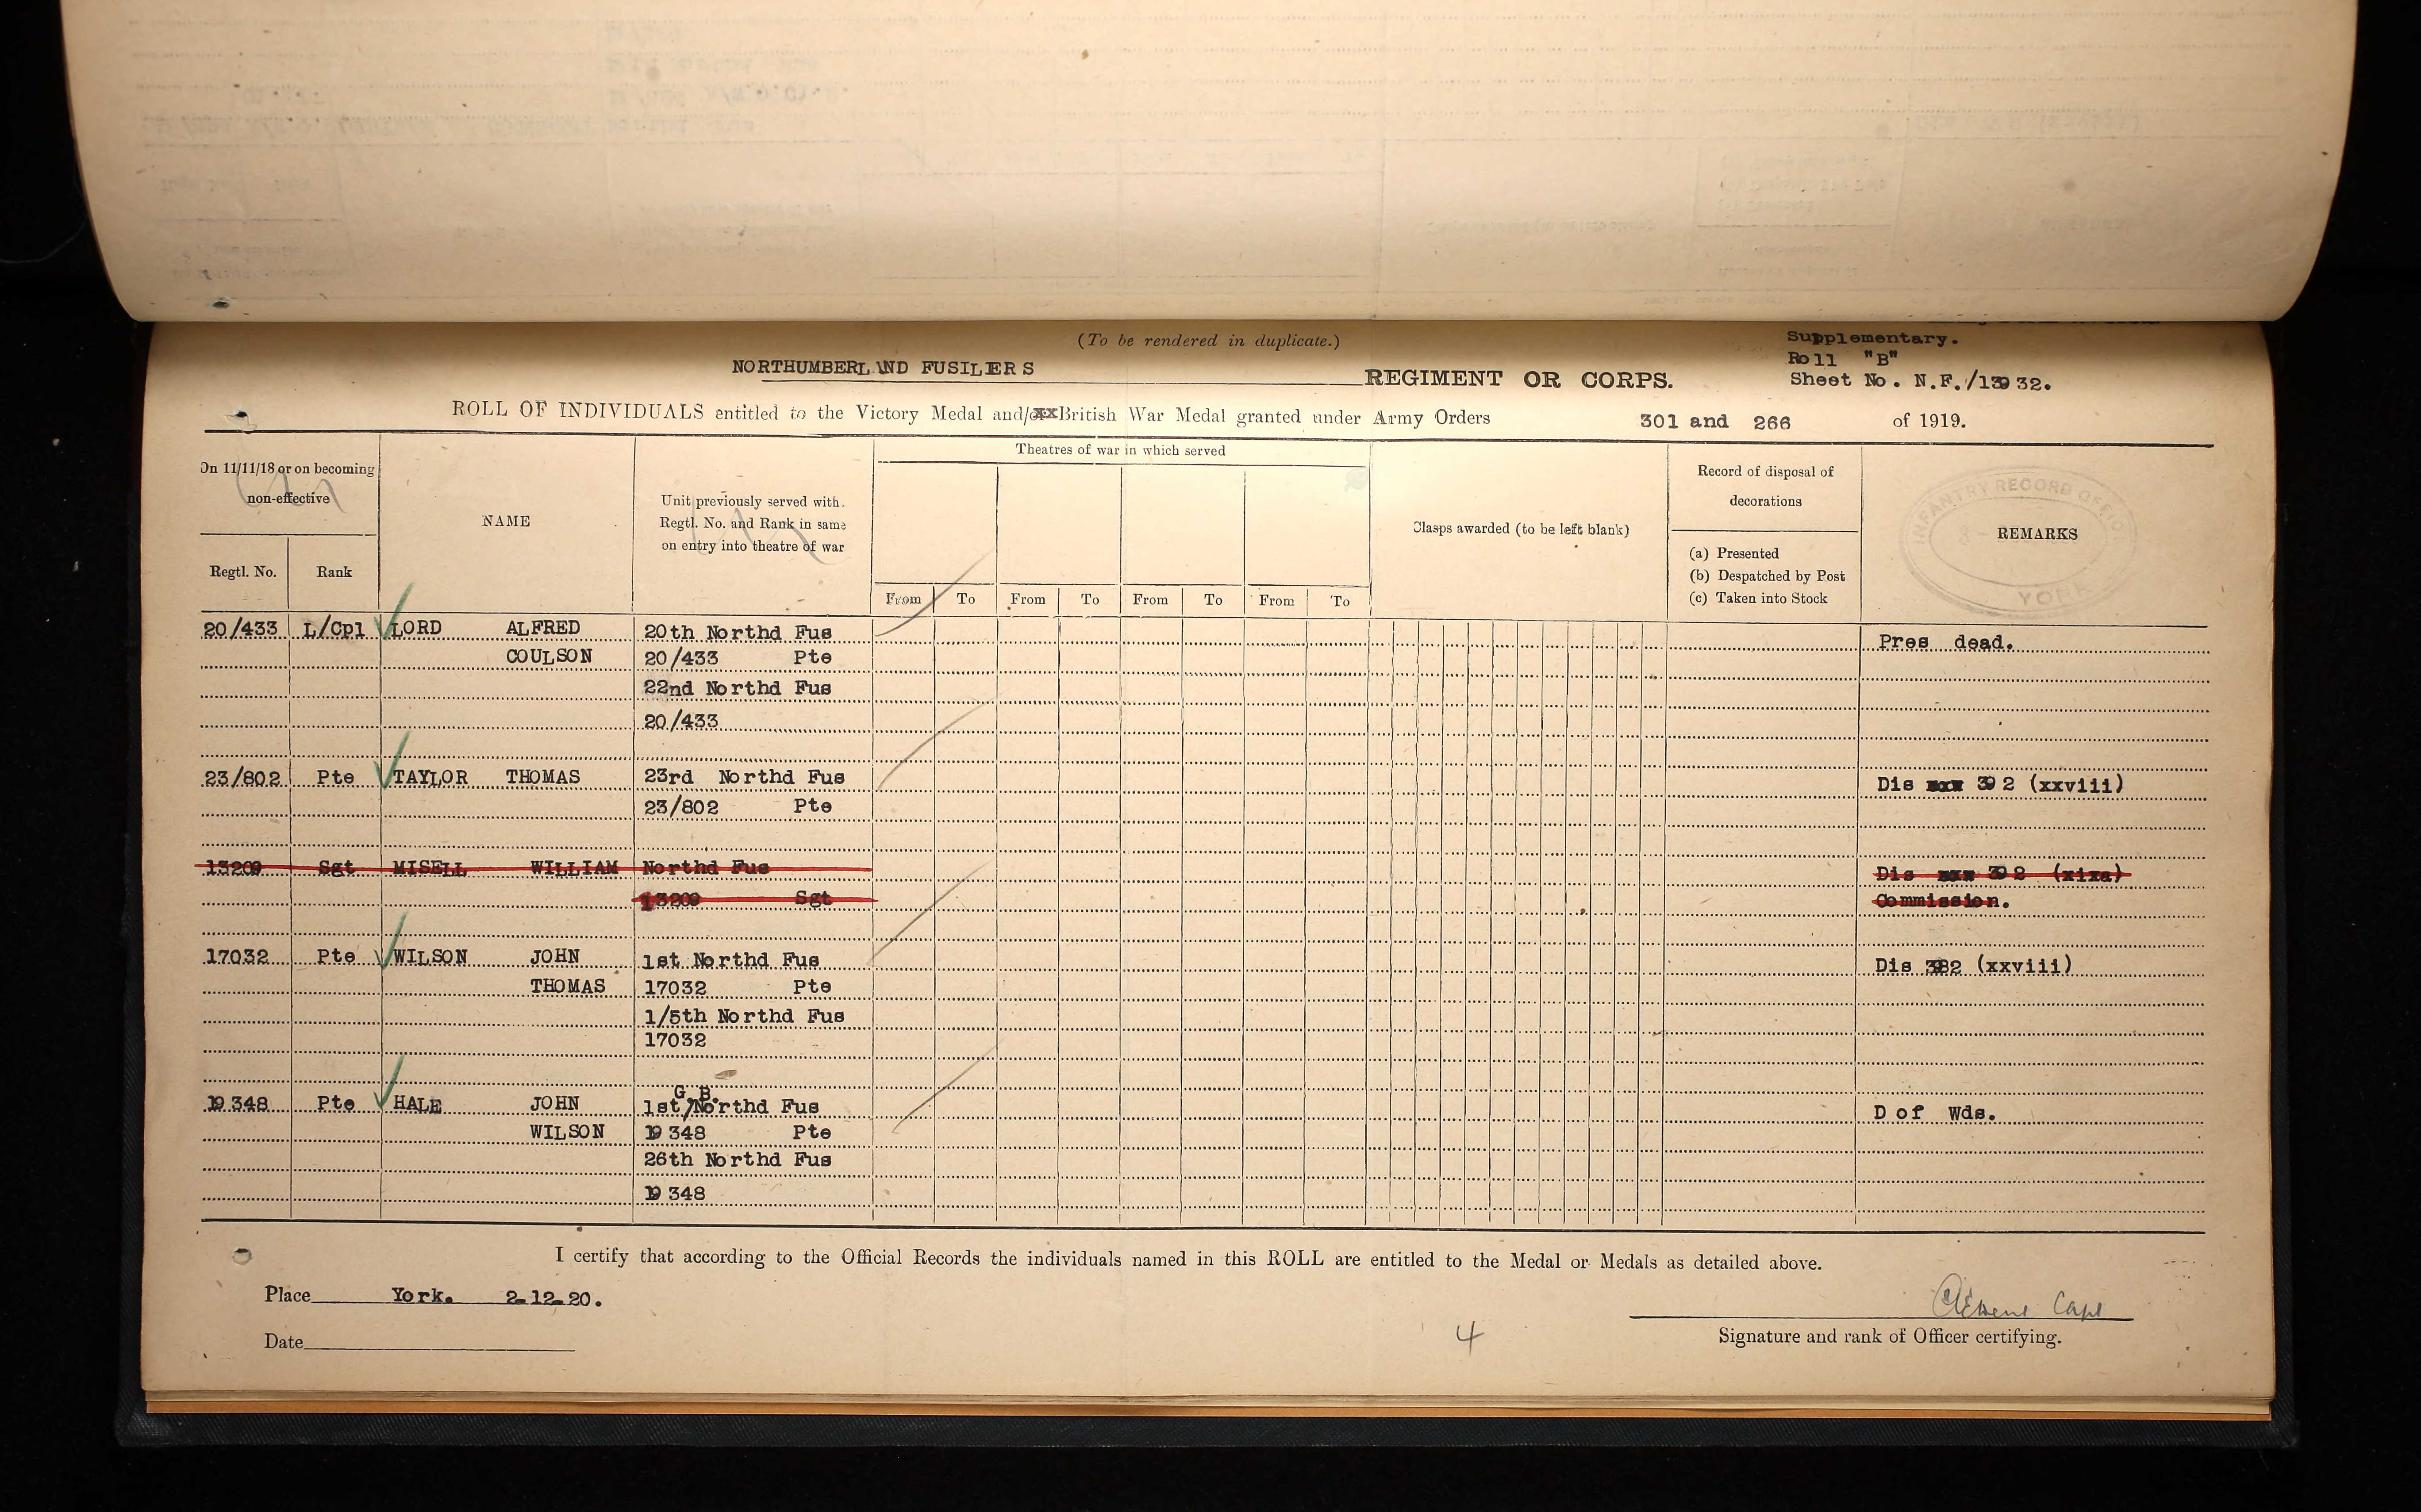 (To be rendered in duplicate.)
Supplementary.
Roll "B"
NORTHUMBERLAND FUSILIERS REGIMENT OR CORPS.
Sheet No. N.F./13932.
ROLL OF INDIVIDUALS entitled to the Victory Medal and/or British War Medal granted under Army Orders 301 and 266 of 1919.
On 11/11/18 or on becoming non-effective
Regtl. No. Rank
NAME
Unit previously served with.
Regtl. No. and Rank in same
on entry into theatre of war
Theatres of war in which served
From To From To From To From To
Clasps awarded (to be left blank)
Record of disposal of
decorations
(a) Presented
(b) Despatched by Post
(c) Taken into Stock
REMARKS
INFANTRY RECORD OFFICE
YORK
20/433 L/Cpl LORD ALFRED 20th Northd Fus Pres dead.
COULSON 20/433 Pte
22nd Northd Fus
20/433
23/802 Pte TAYLOR THOMAS 23rd Northd Fus Dis xxx 392 (xxviii)
23/802 Pte
13209 Sgt MISELL WILLIAM Northd Fus Dis xxx 392 (xixa)
13209 Sgt Commission.
17032 Pte WILSON JOHN 1st Northd Fus Dis 392 (xxviii)
THOMAS 17032 Pte
1/5th Northd Fus
17032
G.B.
19348 Pte HALE JOHN 1st/Northd Fus D of Wds.
WILSON 19348 Pte
26th Northd Fus
19348
I certify that according to the Official Records the individuals named in this ROLL are entitled to the Medal or Medals as detailed above.
Place York. 2-12-20.
Capt
Date
4
Signature and rank of Officer certifying.